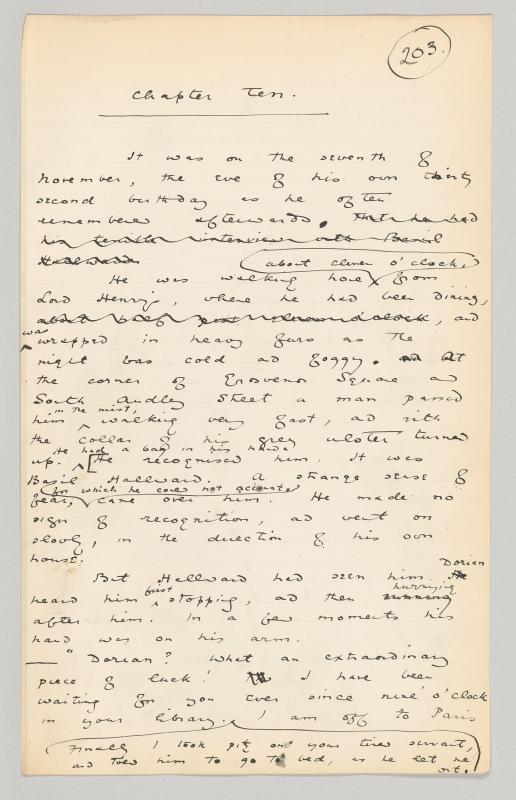 203.
Chapter Ten.
It was on the seventh of
November, the eve of his own thirty
second birthday as he often
remembered afterwards. that he had
his terrible interview with Basil
Hallward.
about eleven o'clock,
He was walking home from
Lord Henry's, where he had been dining,
about half past eleven o'clock, and
was
wrapped in heavy furs as the
night was cold and foggy. At
the corner of Grosvenor Square and
South Audley Street a man passed
in the mist,
him walking very fast, and with
the collar of his grey ulster turned
He had a bag in his hand.
up. He recognised him. It was
Basil Hallward. A strange sense of
for which he could not account
fear, came over him. He made no
sign of recognition, and went on
slowly, in the direction of his own
house.
Dorian
But Hallward had seen him.
first
hurrying
heard him stopping, and then running
after him. In a few moments his
hand was on his arm.
"Dorian? What an extraordinary
piece of luck! I have been
waiting for you ever since nine o'clock
in your library. I am off to Paris
Finally I took pity on your tired servant,
and told him to go to bed, as he let me
out.